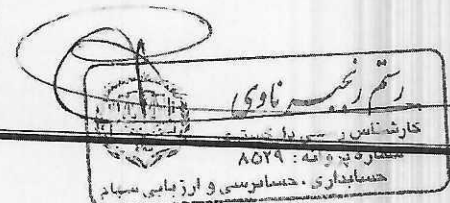 رستم رنجبر ناوی
کارشناس رسمی دادگستری
شماره پروانه: ۸۵۲۹
حسابداری، حسابرسی و ارزیابی سهام